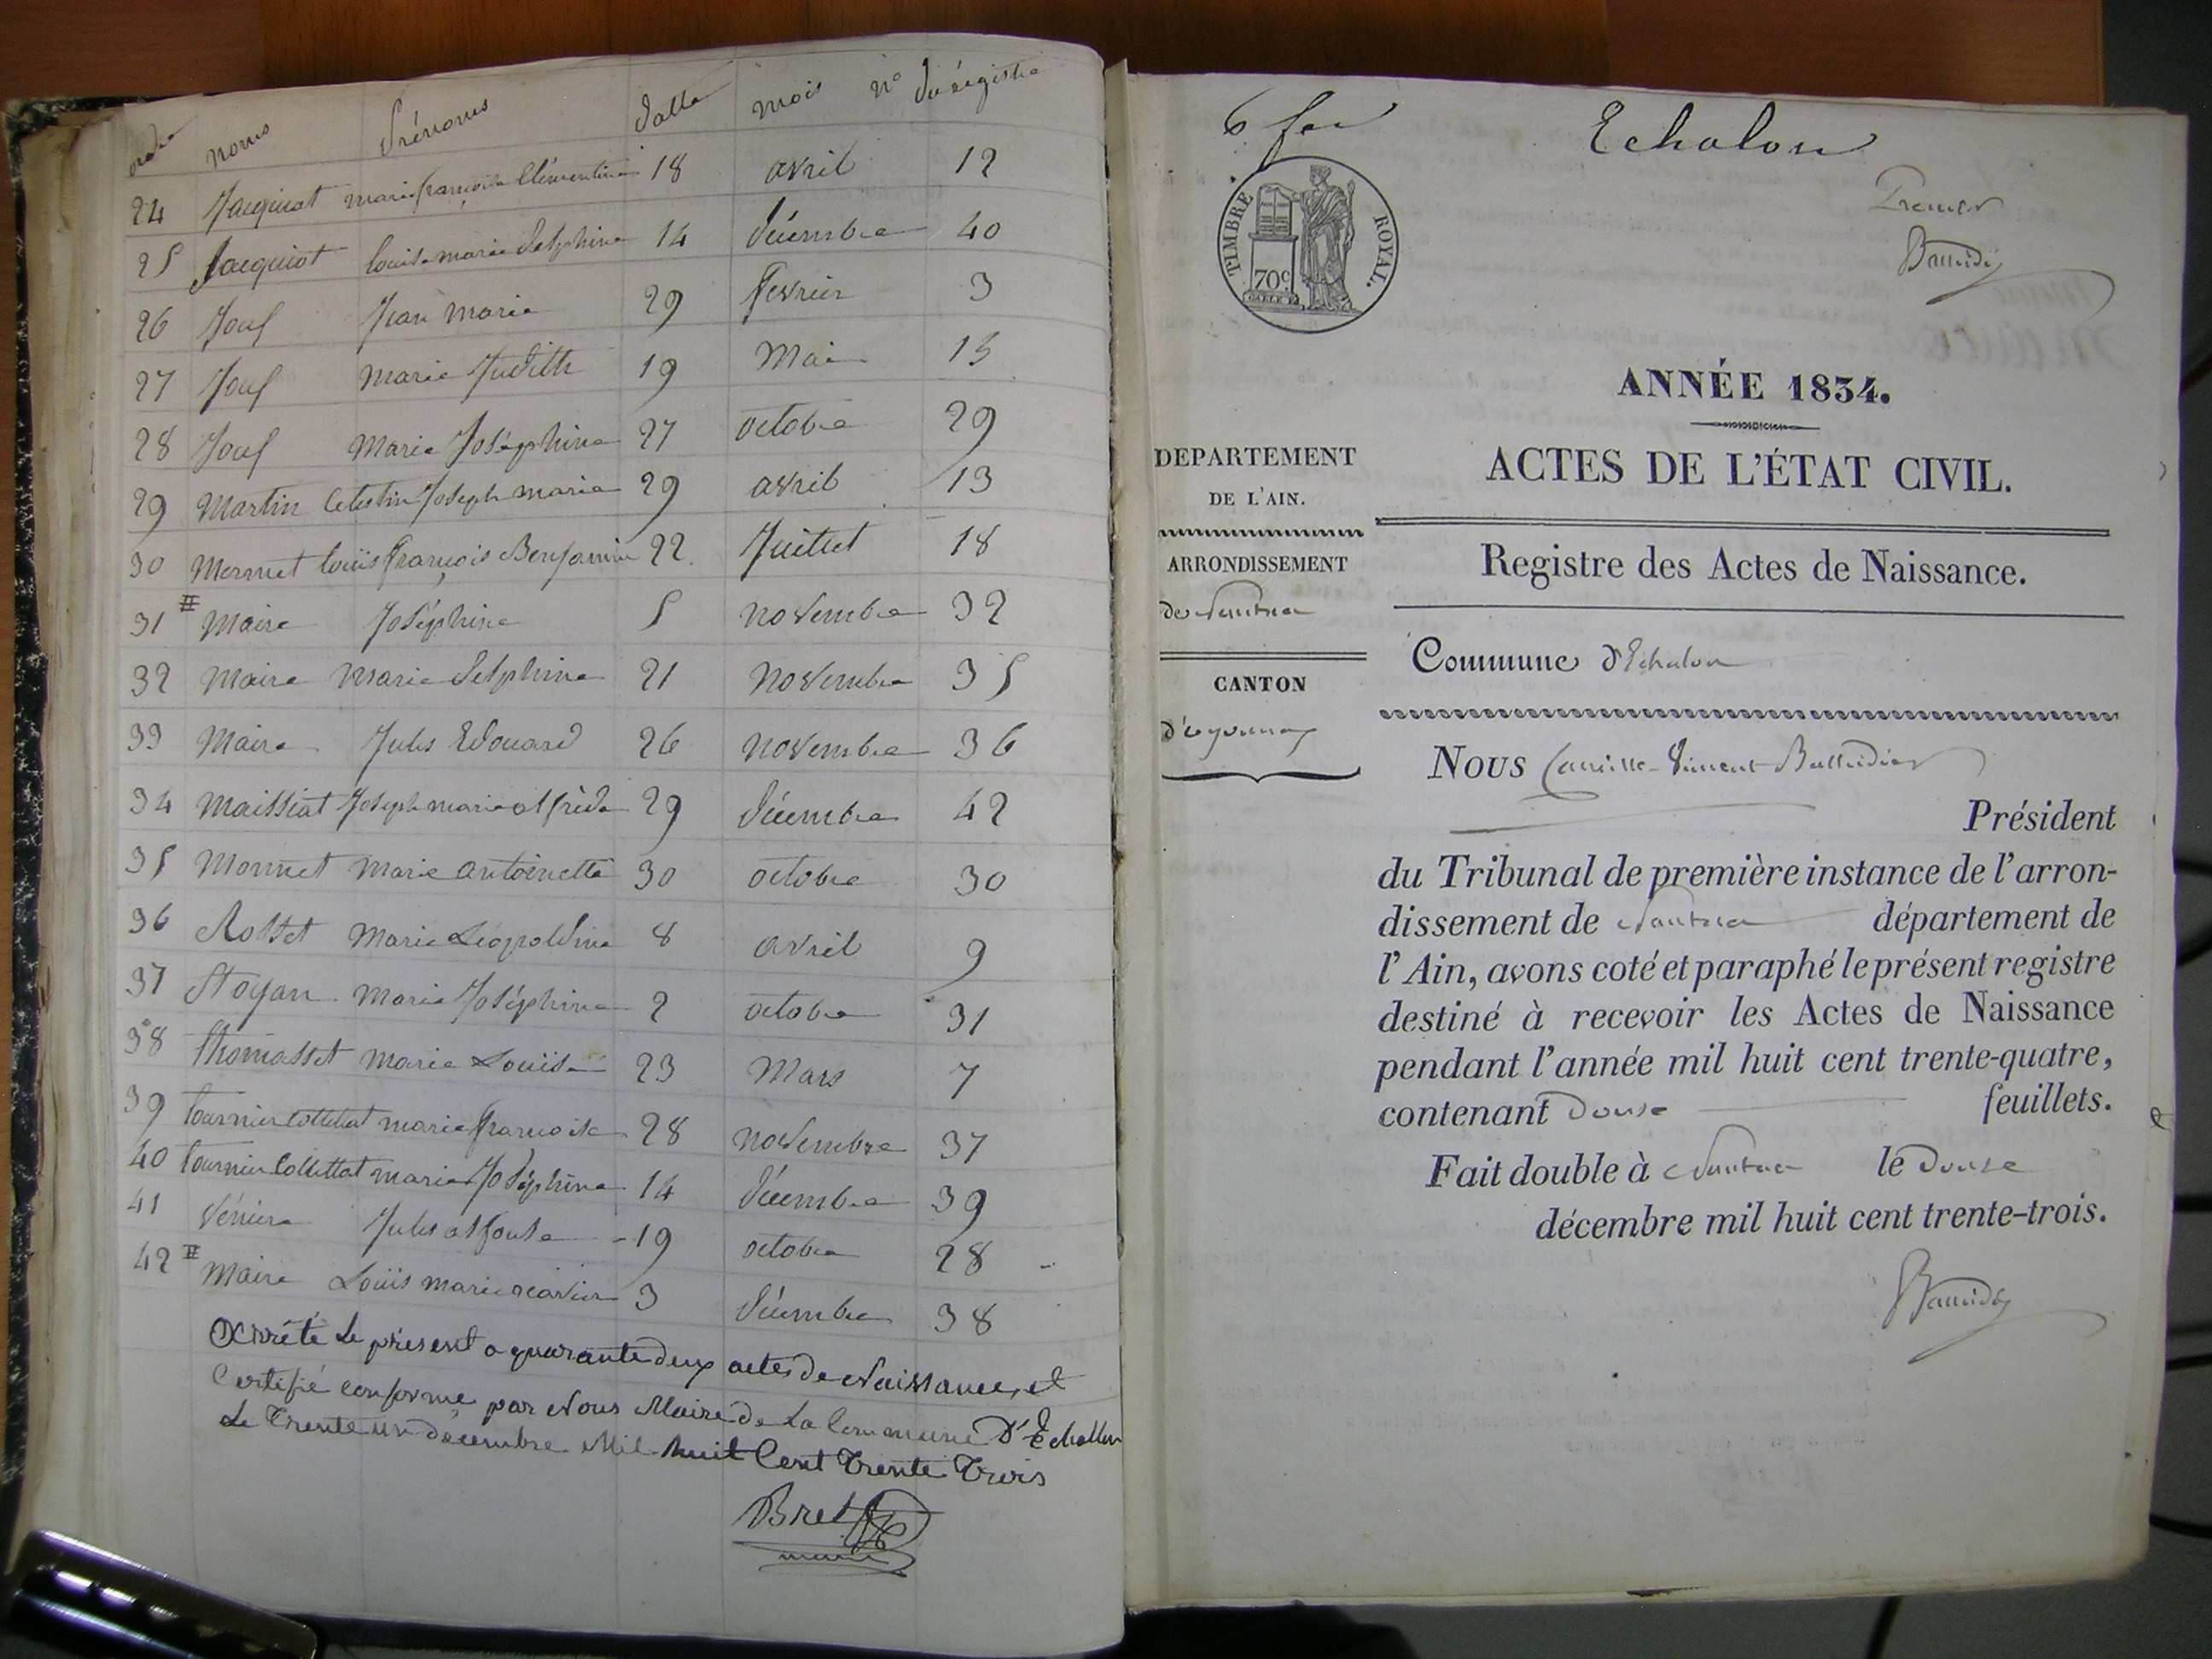 ordre noms Prénoms datte mois n° du régistre
24 Jacquiot marie françoise Clémentine 18 avril 12
25 Jacquiot louise marie delphine 14 décembre 40
26 Jouf Jean marie 29 fevrier 3
27 Jouf marie Judith 19 Mai 15
28 Jouf Marie Joséphine 27 octobre 29
29 Martin Celestin Joseph marie 29 avril 13
30 Mermet louis françois Benjamin 22 Juillet 18
31 Maire Joséphine 5 novembre 32
32 Maire Marie delphine 21 novembre 35
33 Maire Jules Edouard 26 novembre 36
34 Maissiat Joseph marie alfrède 29 décembre 42
35 Monnet Marie antoinette 30 octobre 30
36 Rosset Marie Léopoldine 8 avril 9
37 Stoyan Marie Joséphine 2 octobre 31
38 Thomasset marie Louise 23 Mars 7
39 tournier Collettat marie françoise 28 novembre 37
40 tournier Collettat marie Joséphine 14 décembre 39
41 Véniere Jules alfonse 19 octobre 28
42 Maire Louis marie 3 décembre 38
Arrêté Le présent a quarante deux actes de Naissance, et
Certifié conforme par Nous Maire de La Commune D'Echallon
Le Trente un décembre Mil huit Cent Trente Trois
Bret
maire
6 fer
Echalon
Premier
TIMBRE ROYAL.
70c
ANNÉE 1834.
ACTES DE L'ÉTAT CIVIL.
Registre des Actes de Naissance.
DEPARTEMENT
DE L'AIN.
ARRONDISSEMENT
de Nantua
CANTON
d'oyonnax
Commune d'Echalon
Nous Camille Vincent Balleidier
Président
du Tribunal de première instance de l'arron-
dissement de Nantua département de
l'Ain, avons coté et paraphé le présent registre
destiné à recevoir les Actes de Naissance
pendant l'année mil huit cent trente-quatre,
contenant douse feuillets.
Fait double à Nantua le douse
décembre mil huit cent trente-trois.